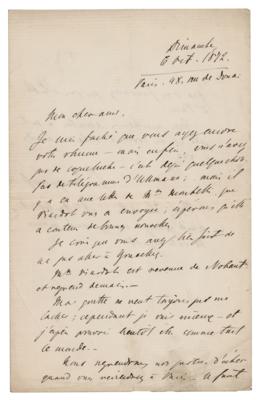 Dimanche
6 Oct. 1872.
Paris. 48, rue de Douai
Mon cher ami,
Je suis fâché que vous ayez encore
votre rhume — mais enfin, vous n'avez
pas de coqueluche — c'est déjà quelque chose
pas de télégramme d' — mais il
y a eu une lettre de Mme que
Viardot vous a envoyée; espérons qu'elle
a contenu de bonnes nouvelles.
Je crois que vous avez bien fait de
ne pas aller à
Mme Viardot est revenue de Nohant
et reprend demain. —
Ma goutte ne veut toujours pas me
lâcher; cependant je vais mieux — et
j'espère pouvoir bientôt comme tout
le monde. —
Nous reprendrons nos parties d'échecs
quand vous reviendrez à Paris — Il faut